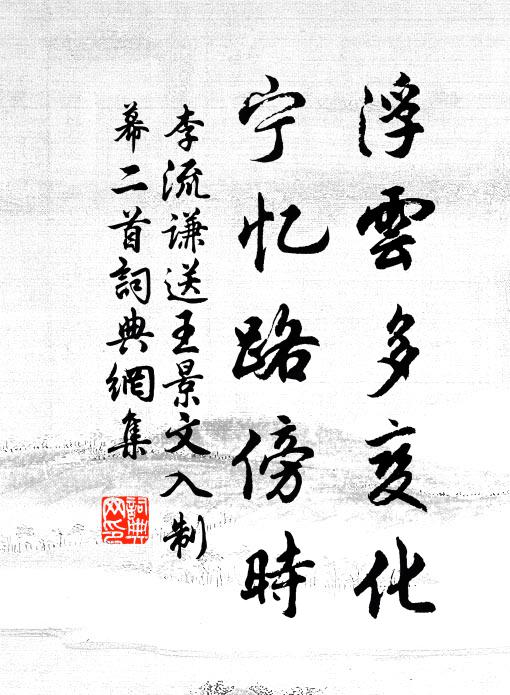 浮雲多变化
宁忆路傍時
李流谦送王景文入制
幕二首詞典網集
詞典
网印